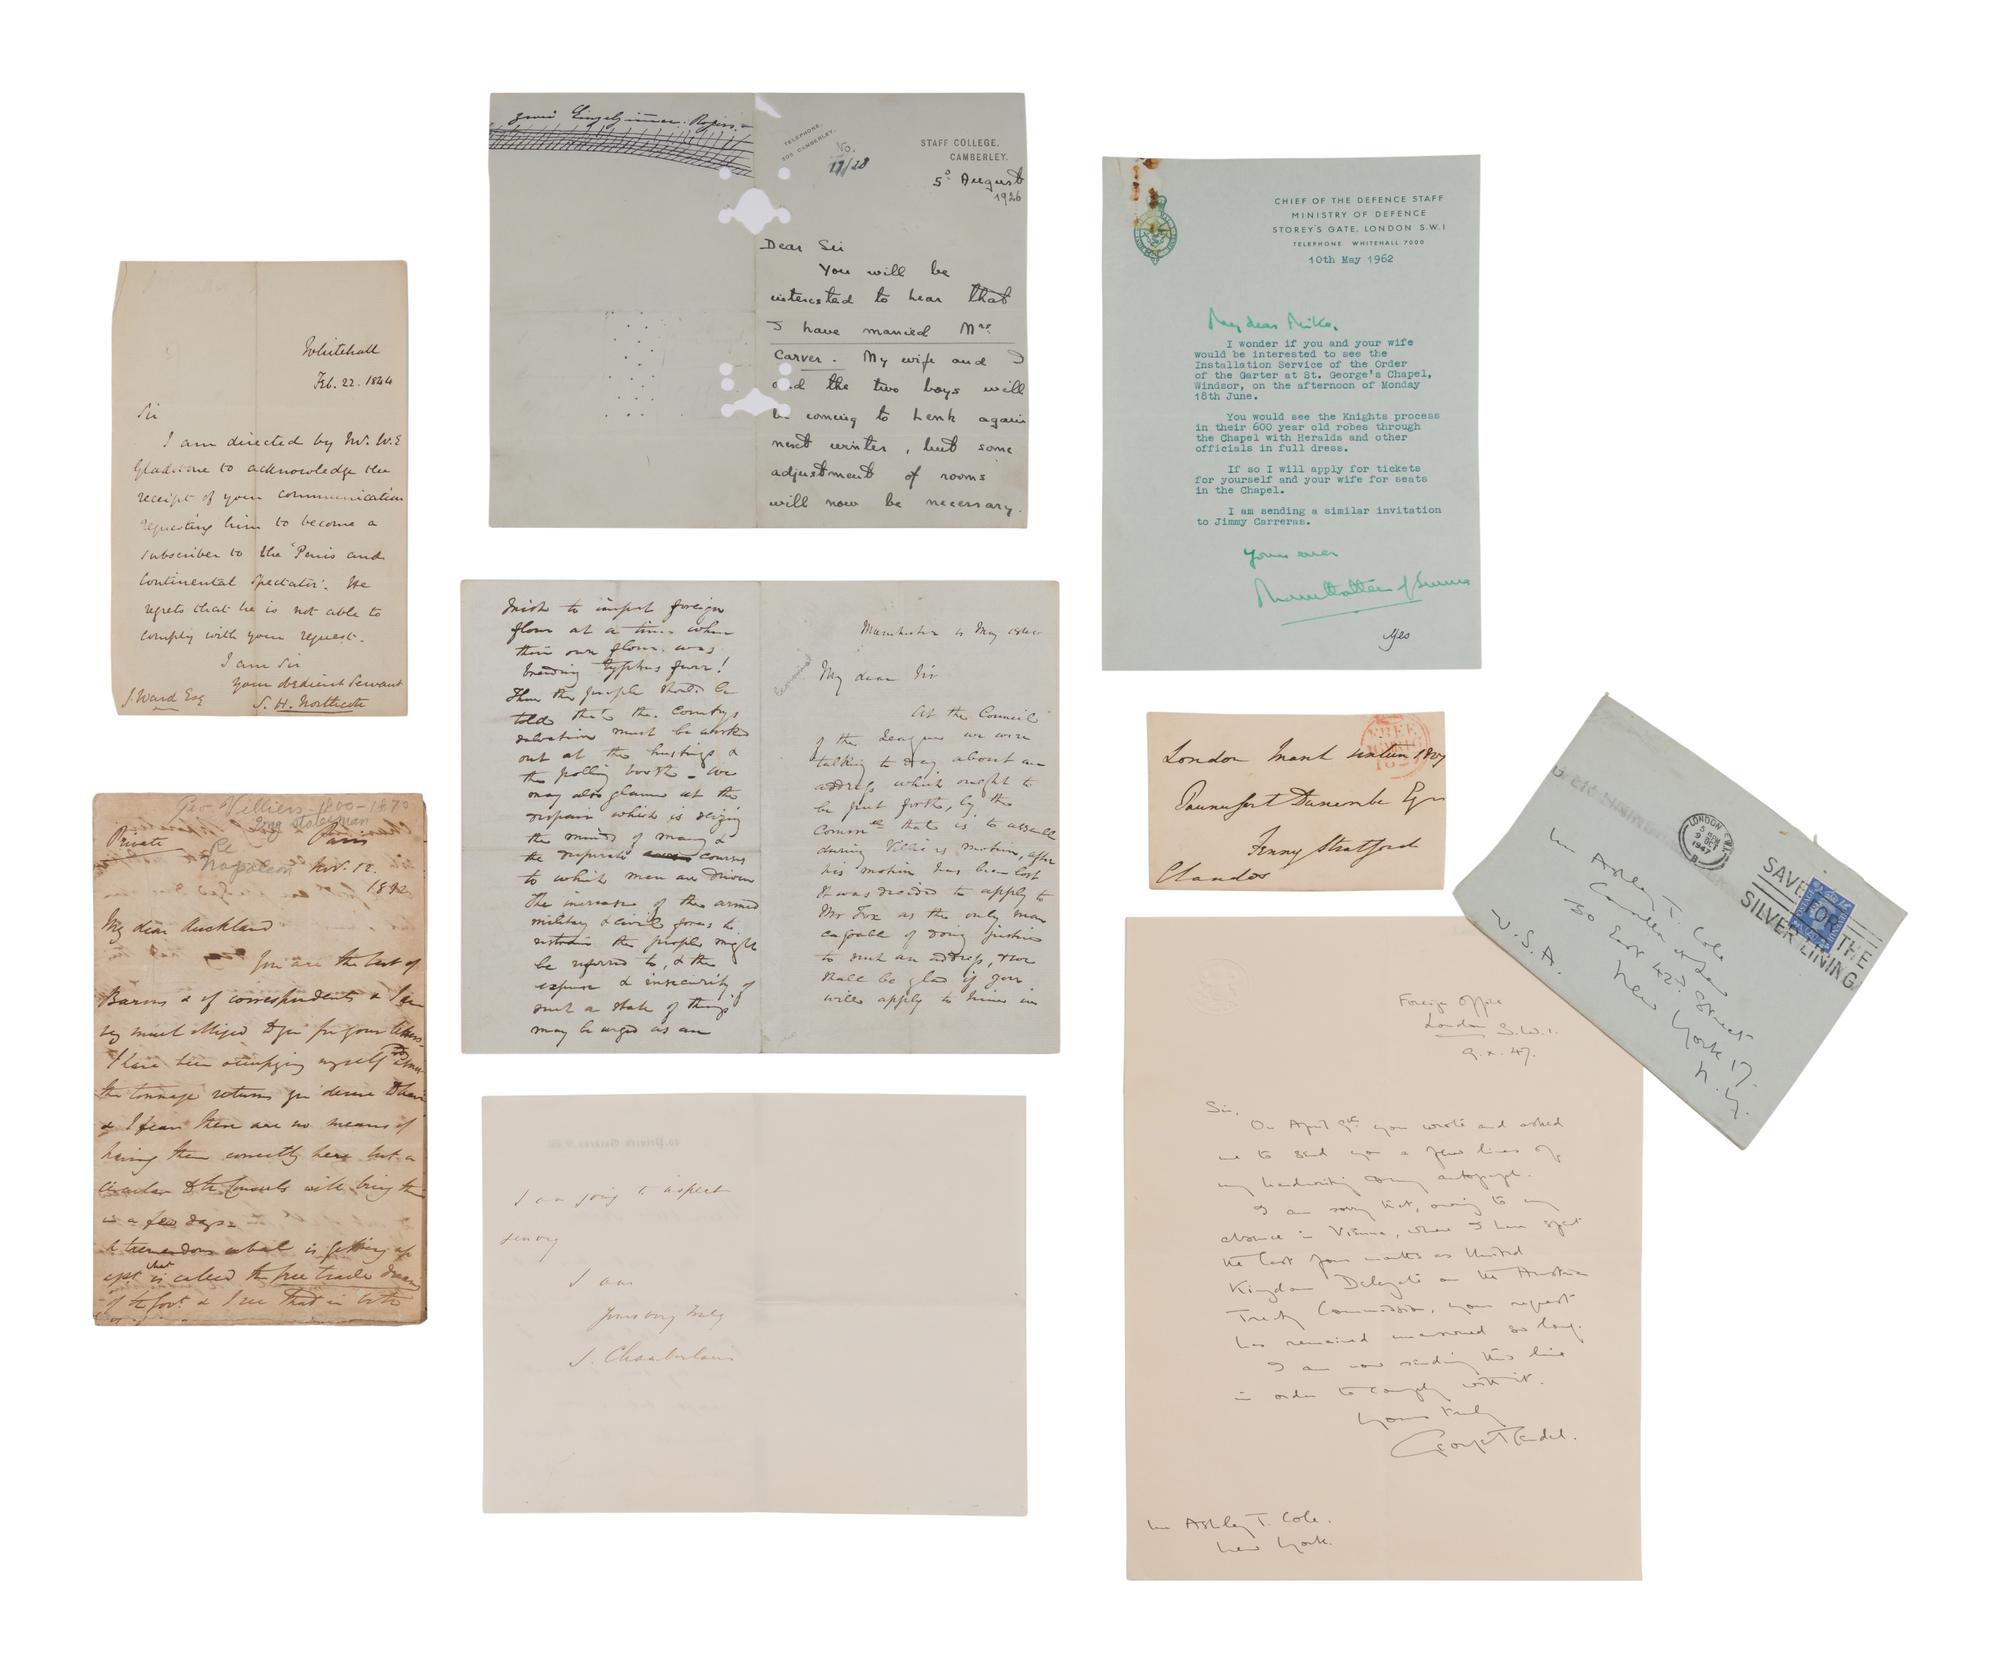 Whitehall
Feb. 22. 1844
Sir
I am directed by Mr. W. E
Gladstone to acknowledge the
receipt of your communication
requesting him to become a
subscriber to the 'Paris and
Continental Spectator'. He
regrets that he is not able to
comply with your request.
I am Sir
Your obedient Servant
J. Ward Esq S. H. Northcote
Geo. Villiers - 1800-1870
Eng statesman
Private Paris
Napoleon Nov. 12.
My dear Auckland
You are the best of
Barons & of correspondents & I am
very much obliged to you for your
I have been occupying myself
the tonnage returns you desire to have
& I fear there are no means of
having them correctly here but a
circular to the Consuls will bring them
in a few days
a tremendous cabal is getting up
agst what is called the free trade
of the Govt & I see that in both
TELEPHONE,
305 CAMBERLEY.
No.
17/28
STAFF COLLEGE.
CAMBERLEY.
5º August
1926
Dear Sir
You will be
interested to hear that
I have married Mrs
Carver. My wife and I
and the two boys will
be coming to Lenk again
next winter, but some
adjustment of rooms
will now be necessary.
Irish to import foreign
flour at a time when
their own flour was
breeding typhus fever!
Then the people should be
told that the Country's
salvation must be worked
out at the hustings &
the polling booth - We
may also glance at the
despair which is seizing
the minds of many &
the desperate courses
to which men are driven
The increase of the armed
military & civil force to
restrain the people might
be referred to, & the
expense & insecurity of
such a state of things
may be urged as an
Manchester 10 May 1840
My dear Sir
At the Council
of the League we were
talking to day about an
address which ought to
be put forth, by the
Commee that is to assemble
during Villiers motion, after
his motion has been lost
It was decided to apply to
Mr Fox as the only man
capable of doing justice
to such an address, & we
shall be glad if you
will apply to him in
I am going to
I am
Yours very truly
J. Chamberlain
CHIEF OF THE DEFENCE STAFF
MINISTRY OF DEFENCE
STOREY'S GATE, LONDON S.W.1
TELEPHONE WHITEHALL 7000
10th May 1962
My dear Mike,
I wonder if you and your wife
would be interested to see the
Installation Service of the Order
of the Garter at St. George's Chapel,
Windsor, on the afternoon of Monday
18th June.
You would see the Knights process
in their 600 year old robes through
the Chapel with Heralds and other
officials in full dress.
If so I will apply for tickets
for yourself and your wife for seats
in the Chapel.
I am sending a similar invitation
to Jimmy Carreras.
Yours ever
Mountbatten of Burma
Yes
FREE
London March sixteen 1827
Pauncefort Duncombe Esqr
Fenny Stratford
Chandos
LONDON S.W.1
9 OCT
1947
B
SAVE FOR THE
SILVER LINING
Mr Ashley T. Cole
50 East 42d. Street
New York 17.
N.Y.
U.S.A.
Foreign Office
London S.W.1.
9.x.47.
Sir,
On April 9th you wrote and asked
me to send you a few lines of
my handwriting & my autograph.
I am sorry that, owing to my
absence in Vienna, where I have spent
the last four months as United
Kingdom Delegate on the Austrian
Treaty Commission, your request
has remained unanswered so long.
I am now sending this line
in order to comply with it.
Yours truly
George Rendel.
Mr Ashley T. Cole.
New York.